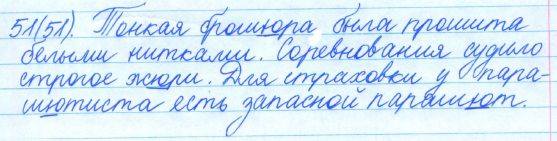 51(51). Тонкая брошюра была прошита
белыми нитками. Соревнования судило
строгое жюри. Для страховки у пара-
шютиста есть запасной парашют.